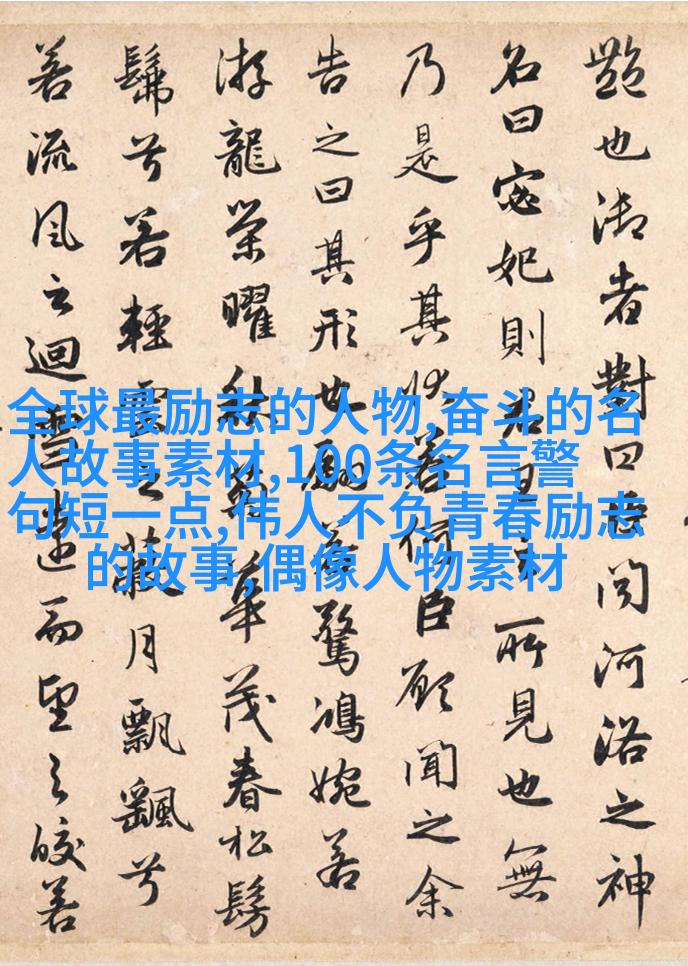 艷也御者對曰臣聞河洛之神
名曰宓妃則君王之所見也無
乃是乎其狀若何臣願聞之余
告之曰其形也翩若驚鴻婉若
游龍榮曜秋菊華茂春松髣
髴兮若輕雲之蔽月飄颻兮
若流風之迴雪遠而望之皎若
全球最励志的人物,奋斗的名
人故事素材,100条名言警
句短一点,伟人不负青春励志
的故事,偶像人物素材